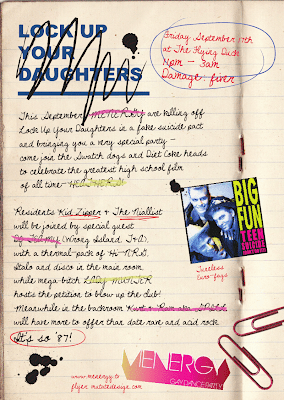 LOCK UP
YOUR
DAUGHTERS
Friday September 11th
at The Flying Duck
11pm – 3am
Damage: fiver
This September MENERGY are killing off
Lock Up Your Daughters in a fake suicide pact
and bringing you a very special party –
come join the Swatch dogs and Diet Coke heads
to celebrate the greatest high school film
of all time – HEATHERS!
Residents Kid Zipper + The Niallist
will be joined by special guest
(Wrong Island, )
with a thermal-pack of Hi-NRG,
Italo and disco in the main room
while mega-bitch Lady MUNTER
hosts the petition to blow up the club!
Meanwhile in the backroom
will have more to offer than date rape and acid rock
It's so '87!
BIG
FUN
TEEN
SUICIDE
Tuneless
Euro-fags
MENERGY
GAY DANCE PARTY
www.menergy.tv